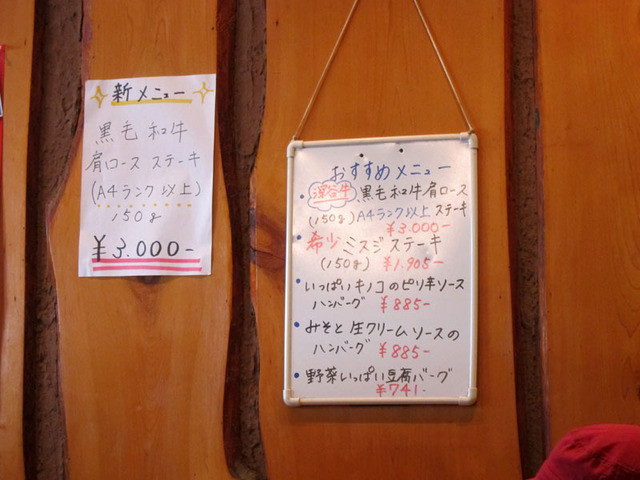 新メニュー
黒毛和牛
肩ロース ステーキ
(A4ランク以上)
150g
¥3.000-
おすすめメニュー
・深谷牛 黒毛和牛肩ロース
(150g) A4ランク以上 ステーキ
¥3.000-
・希少 ミスジステーキ
(150g) ¥1.905-
・いっぱいキノコのピリ辛ソース
ハンバーグ ¥885-
・みそと生クリームソースの
ハンバーグ ¥885-
・野菜いっぱい豆腐バーグ
¥741.